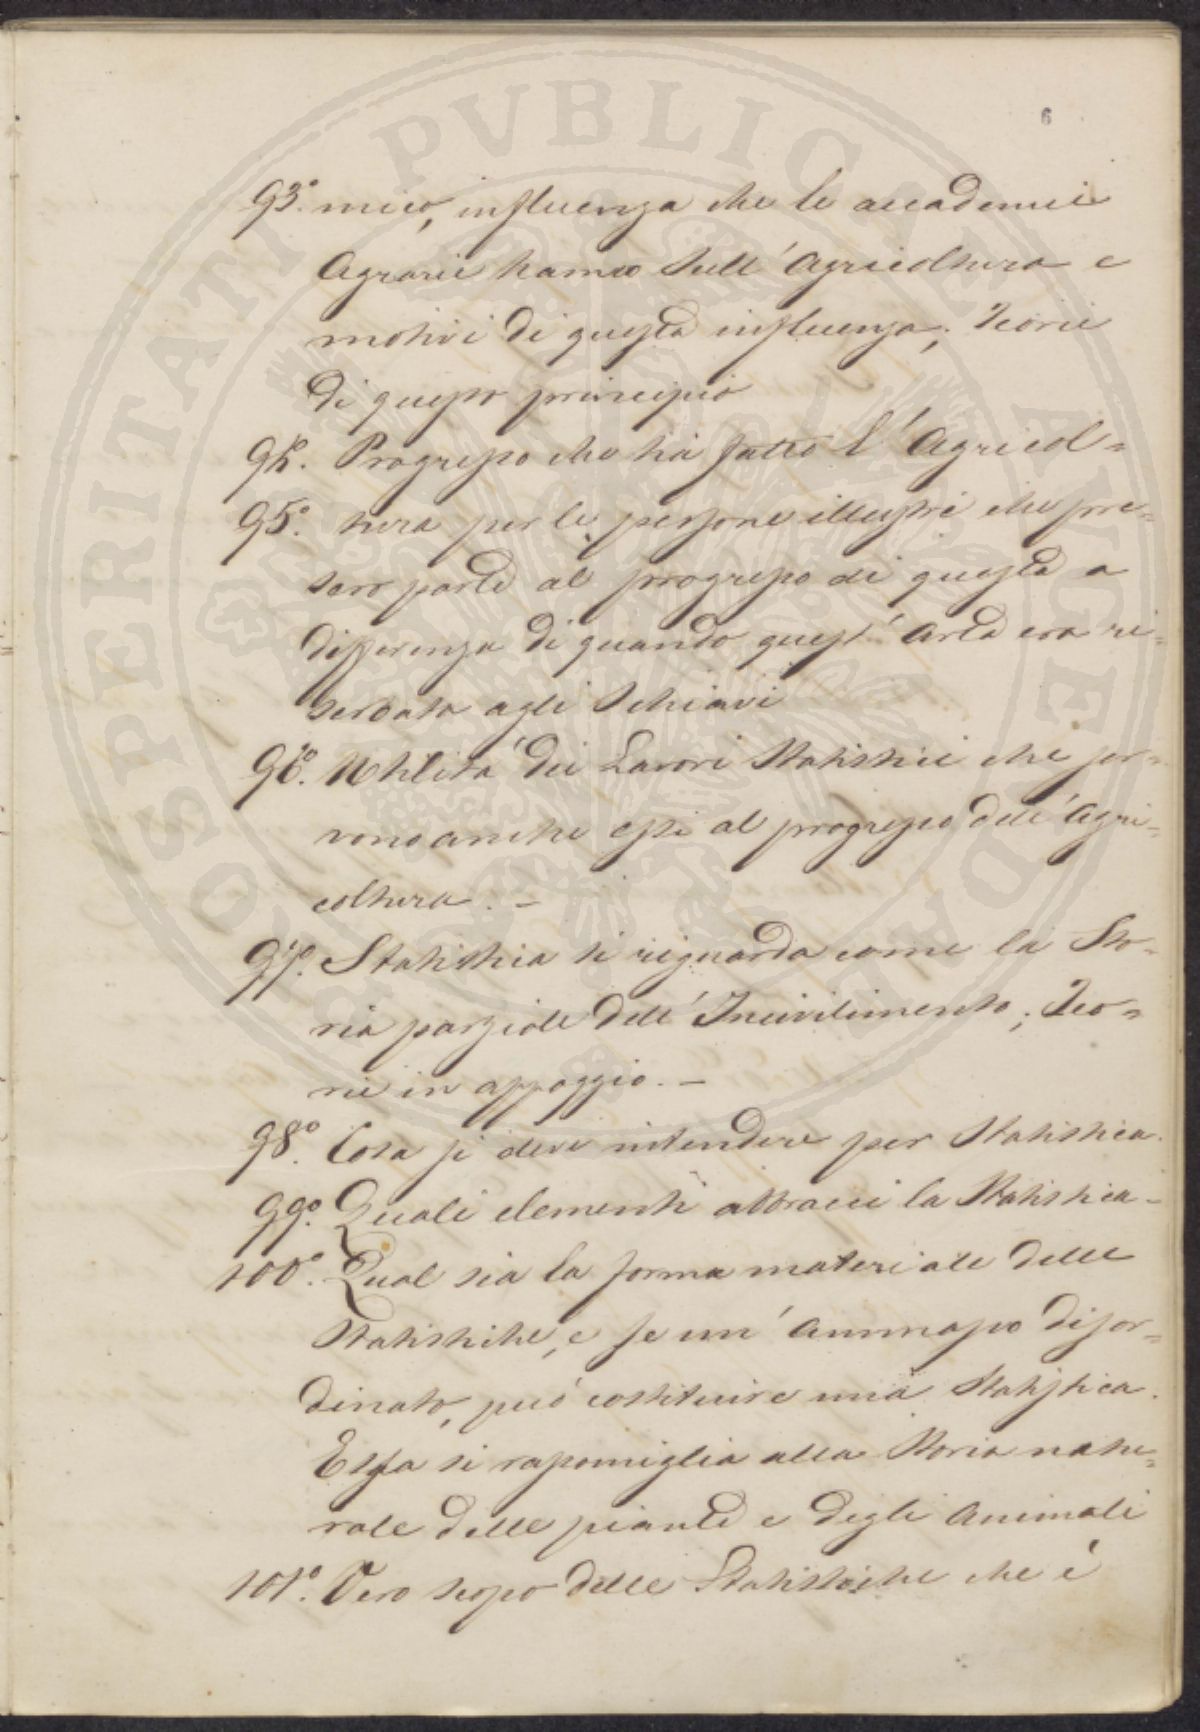 6
93.° mico, influenza che le accademie
Agrarie hanno sull' Agricoltura e
motivi di questa influenza; Teorie
di questo principio
94.° Progresso che hà fatto l' Agricol=
95.° tura per le persone illustri che pre=
sero parte al progresso di questa a
differenza di quando quest' Arte era ri=
serbata agli Schiavi
96.° Utilità dei Lavori Statistici che ser=
vono anche essi al progresso dell' Agri=
coltura. –
97.° Statistica si riguarda come la Sto=
ria parziale dell' Incivilimento; Teo=
rie in appoggio. –
98.° Cosa si deve intendere per Statistica.
99.° Quali elementi abbracci la Statistica –
100.° Qual sia la forma materiale delle
Statistiche, e se un' Ammasso disor=
dinato, può costituire una Statistica.
Essa si rassomiglia alla Storia natu=
rale delle piante e degli Animali
101.° Vero scopo delle Statistiche che è
PROSPERITATI PVBLICAE AVGENDAE